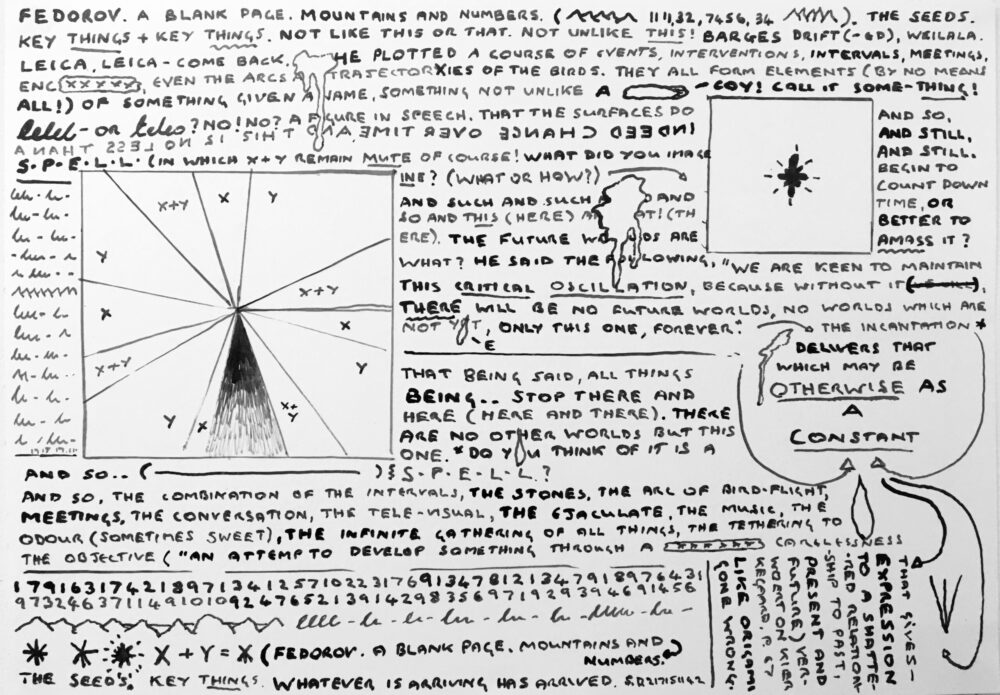 FEDOROV. A BLANK PAGE. MOUNTAINS AND NUMBERS. ( 1111,32,7456,34 ). THE SEEDS.
KEY THINGS + KEY THINGS. NOT LIKE THIS OR THAT. NOT UNLIKE THIS! BARGES DRIFT (-GD), WEILALA.
LEICA, LEICA - COME BACK. HE PLOTTED A COURSE OF EVENTS, INTERVENTIONS, INTERVALS, MEETINGS,
ENC(XXXXX), EVEN THE ARCS TRAJECTORXIES OF THE BIRDS. THEY ALL FORM ELEMENTS (BY NO MEANS
ALL!) OF SOMETHING GIVEN A NAME, SOMETHING NOT UNLIKE A - COY! CALL IT SOME-THING!
- or ? NO! NO? A FIGURE IN SPEECH. THAT THE SURFACES DO
INDEED CHANGE OVER TIME. AND THIS IS NO LESS THAN A
S.P.E.L.L. (IN WHICH X+Y REMAIN MUTE OF COURSE! WHAT DID YOU IMAGE
INE? (WHAT OR HOW?)
AND SUCH AND SUCH AND
SO AND THIS (HERE) AT! (TH
ERE). THE FUTURE DS ARE
WHAT? HE SAID THE FOLLOWING,
"WE ARE KEEN TO MAINTAIN
THIS CRITICAL OSCILLATION, BECAUSE WITHOUT IT
THERE WILL BE NO FUTURE WORLDS, NO WORLDS WHICH ARE
NOT YET, ONLY THIS ONE, FOREVER."
E
AND SO,
AND STILL,
AND STILL.
BEGIN TO
COUNT DOWN
TIME, OR
BETTER TO
AMASS IT?
X+Y
X
Y
Y
X+Y
X
X
X+Y
Y
Y
X
X+Y
THE INCANTATION *
DELIVERS THAT
WHICH MAY BE
OTHERWISE AS
A
CONSTANT
THAT BEING SAID, ALL THINGS
BEING.. STOP THERE AND
HERE (HERE AND THERE). THERE
ARE NO OTHER WORLDS BUT THIS
ONE. * DO YOU THINK OF IT IS A
S.P.E.L.L.?
AND SO.. ( )
AND SO, THE COMBINATION OF THE INTERVALS, THE STONES, THE ARC OF BIRD-FLIGHT,
MEETINGS, THE CONVERSATION, THE TELE-VISUAL, THE EJACULATE, THE MUSIC, THE
ODOUR (SOMETIMES SWEET), THE INFINITE GATHERING OF ALL THINGS, THE TETHERING TO
THE OBJECTIVE ("AN ATTEMPT TO DEVELOP SOMETHING THROUGH A CARELESSNESS
THAT GIVES -
EXPRESSION
TO A SHATTE-
RED RELATION-
SHIP TO PAST,
PRESENT AND
FUTURE) VER-
WOERT ON KIER
KEGAARD. P. 67
LIKE ORIGAMI
GONE WRONG.
179163174218971341257102231769134781213479189764 31
973246371149101092476521391429835697192939469 1456
X + Y = X (FEDOROV. A BLANK PAGE. MOUNTAINS AND
NUMBERS.)
THE SEEDS. KEY THINGS. WHATEVER IS ARRIVING HAS ARRIVED.